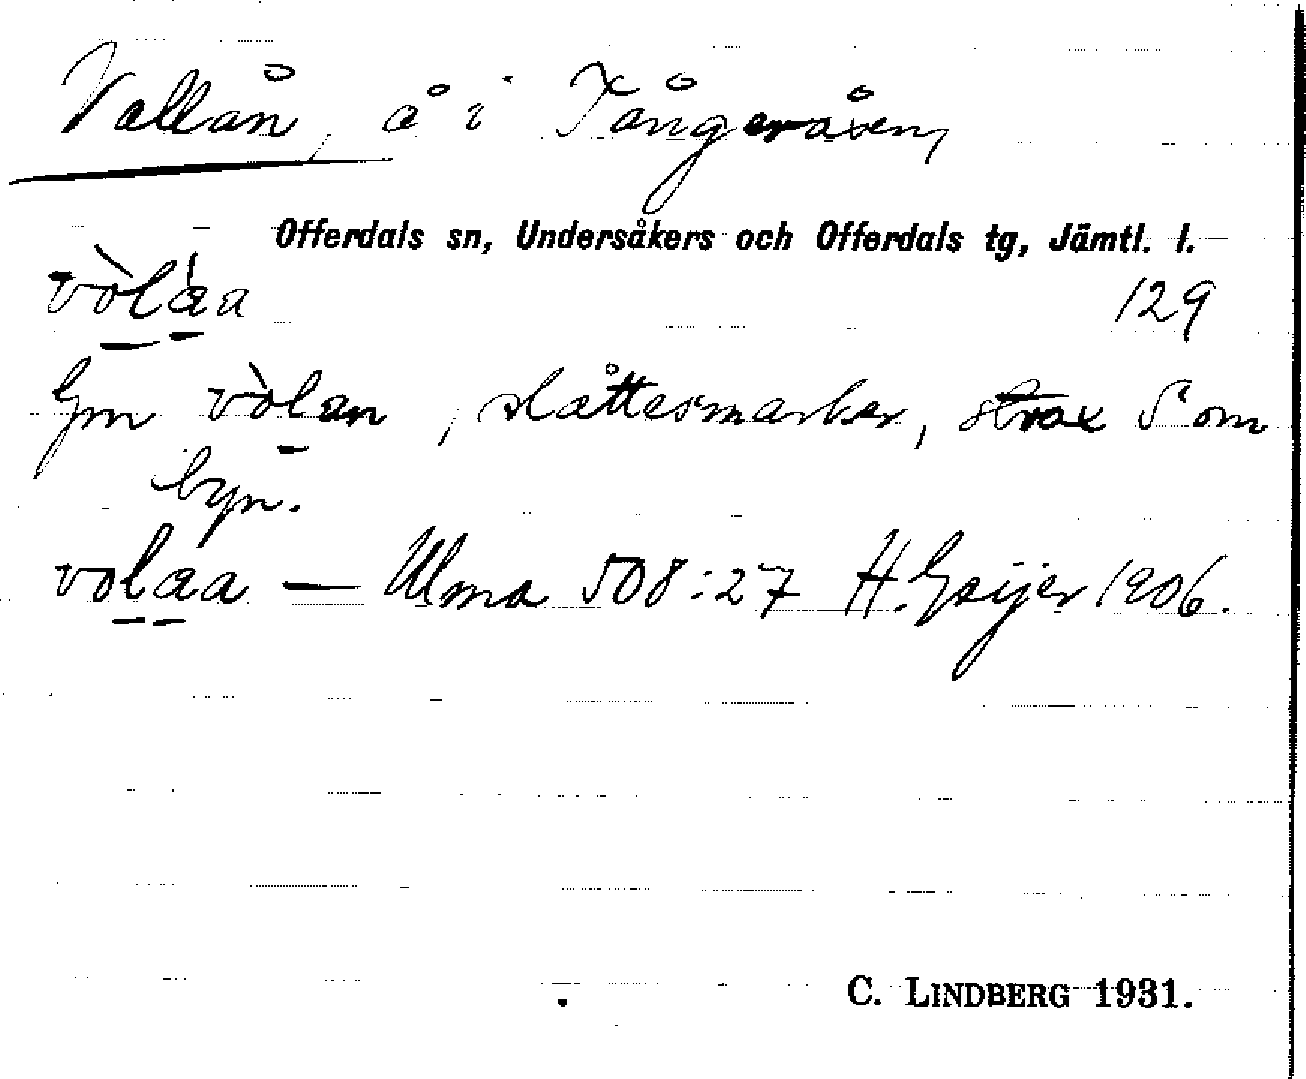 Vallån, å i Tångeråsen,
Offerdals sn, Undersåkers och Offerdals tg, Jämtl. l.
vòlàa 129
Gm vòlan, slåttesmarker, strax S om
byn.
volaa — Ulma 508:27 H. Geijer 1906.
C. LINDBERG 1931.